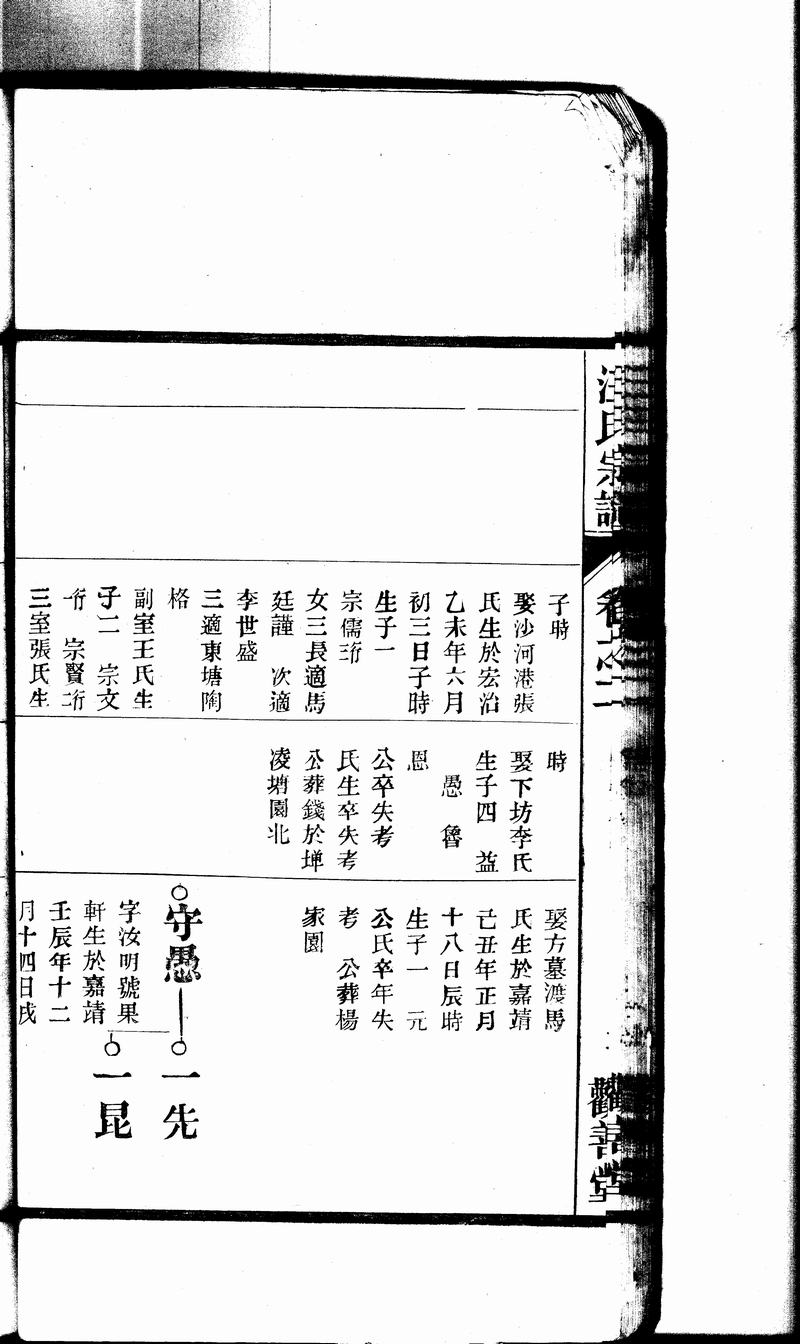 汪氏宗譜
卷之二
觀善堂
子時
娶沙河港張
氏生於宏治
乙未年六月
初三日子時
生子一
宗儒
女三長適馬
廷謹　次適
李世盛
三適東塘陶
格
副室王氏生
子二　宗文
宗賢
三室張氏生
時
娶下坊李氏
生子四　益
愚　魯
恩
公卒失考
氏生卒失考
公葬錢於埤
凌塘園北
娶方墓渡馬
氏生於嘉靖
己丑年正月
十八日辰時
生子一　元
公氏卒年失
考　公葬楊
家園
守愚
字汝明號果
軒生於嘉靖
壬辰年十二
月十四日戌
一先
一昆